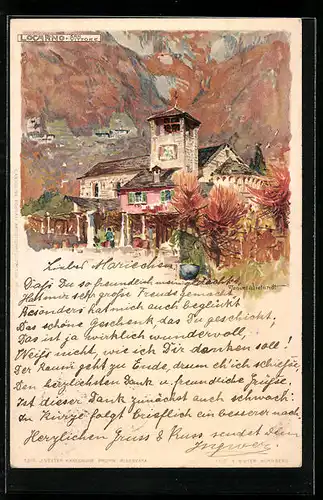 LOCARNO - SAN VITTORE
Manuel Wielandt
Liebes Mariechen
Dass Du so freundlich mein gedacht
Hat mir sehr grosse Freude gemacht
Besonders hat mich auch beglückt
Das schöne Geschenk das Du geschickt,
Das ist ja wirklich wundervoll,
Weiß nicht, wie ich Dir danken soll!
Der Raum geht zu Ende, drum ich schließe,
Den herzlichsten Dank u. freundliche Grüße,
Ist dieser Dank zunächst auch schwach:
In Kürze folgt brieflich ein besserer nach.
Herzlichen Gruss & Kuss sendet Dein
NÜRNBERG